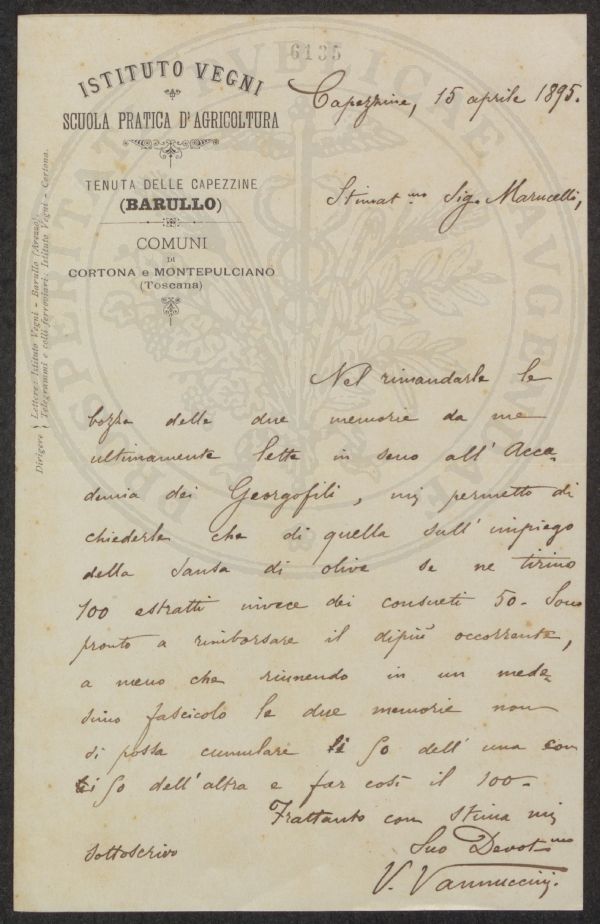 6135
ISTITUTO VEGNI
SCUOLA PRATICA D'AGRICOLTURA
TENUTA DELLE CAPEZZINE
(BARULLO)
COMUNI
DI
CORTONA e MONTEPULCIANO
(Toscana)
Dirigere } Lettere: Istituto Vegni - Barullo (Arezzo).
Telegrammi e colli ferroviari: Istituto Vegni - Cortona.
PROSPERITATI PVBLICAE AVGENDAE
Capezzine, 15 aprile 1895.
Stimat.mo Sig. Marucelli,
Nel rimandarle le
bozze delle due memorie da me
ultimamente lette in seno all'Acca-
demia dei Georgofili, mi permetto di
chiederle che di quella sull'impiego
della sansa di olive se ne tirino
100 estratti invece dei consueti 50. Sono
pronto a rimborsare il dipiù occorrente,
a meno che riunendo in un mede-
simo fascicolo le due memorie non
si possa cumulare li 50 dell'una con
i 50 dell'altra e far così il 100.
Frattanto con stima mi
sottoscrivo
Suo Devot.mo
V. Vannuccini.